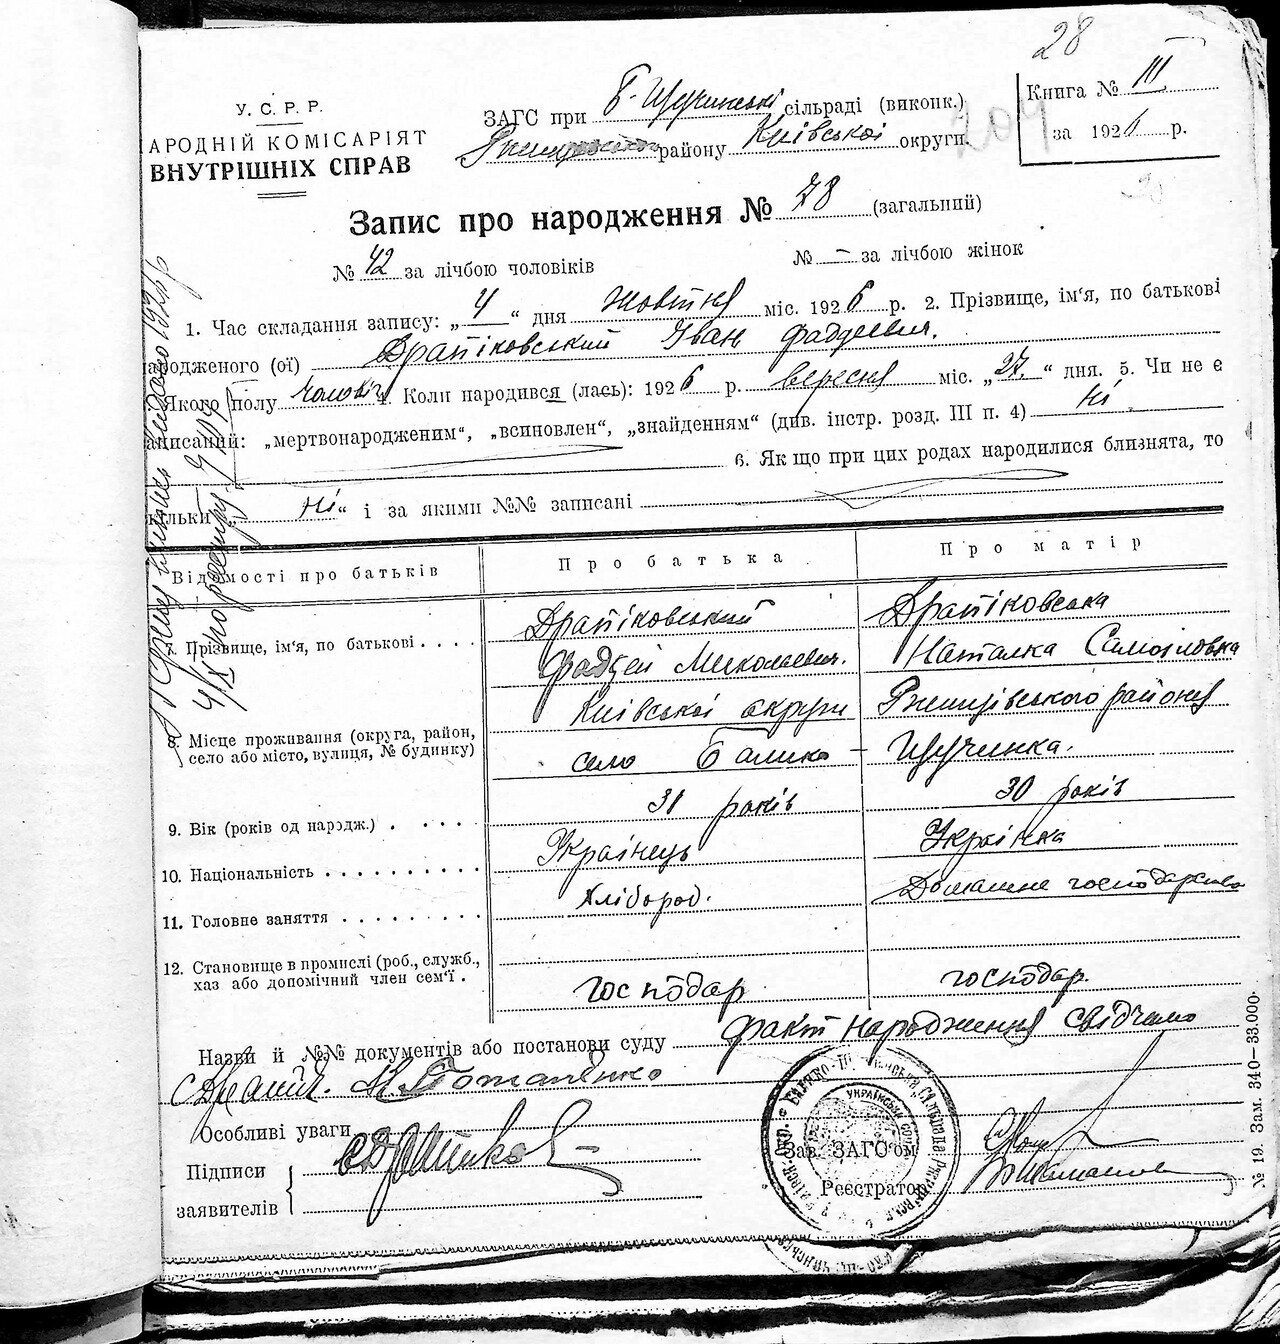 28
У. С. Р. Р.
АРОДНІЙ КОМІСАРІЯТ
ВНУТРІШНІХ СПРАВ
ЗАГС при Б-Щучинські сільраді (виконк.)
району Київської округи.
Книга № III
за 1926 р.
204
Запис про народження № 78 (загальний)
№ 42 за лічбою чоловіків № – за лічбою жінок
1. Час складання запису: „ 4 “ дня жовтня міс. 1926 р. 2. Прізвище, ім'я, по батькові
ародженого (ої) Драпіковський Іван Фадеевич.
Якого полу чоловіч 4. Коли народився (лась): 1926 р. вересня міс. „27“ дня. 5. Чи не є
аписаний: „мертвонародженим“, „всиновлен“, „знайденням“ (див. інстр. розд. III п. 4) ні.
6. Як що при цих родах народилися близнята, то
кільки ні“ і за якими №№ записані
Відомості про батьків
Про батька
Про матір
7. Прізвище, ім'я, по батькові . . . .
Драпіковський
Фадей Миколаевич.
Драпіковська
Наталка Самойловна
8. Місце проживання (округа, район,
село або місто, вулиця, № будинку)
Київської округи Ржищівського району
село Балико – Щучинка.
9. Вік (років од народж.) . . . .
31 років
30 років
10. Національність . . . . . . . . . .
Українець
Українка
11. Головне заняття . . . . . . . .
Хлібороб.
Домашне господарство
12. Становище в промислі (роб., служб.,
хаз або допомічний член сем'ї .
господар
господар.
Назви й №№ документів або постанови суду факт народження свідчит
Потапенко
Особливі уваги
Підписи
заявителів
Зав. ЗАГС'ом
Реєстратор
№ 19. Зам. 340—33.000.